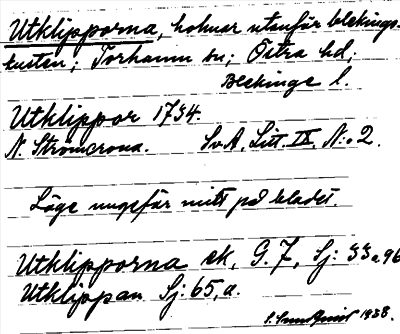 Utklipporna, holmar utanför blekings-
kusten; Torhamn sn; Östra hd;
Blekinge l.
Utklippor 1734.
N. Strömcrona. SvA, Litt. IX, N:o 2.
Läge ungefär mitt på bladet.
Utklipporna ek, G. 7, Sj: 33 a, 96
Utklippan Sj: 65, a.
1938.